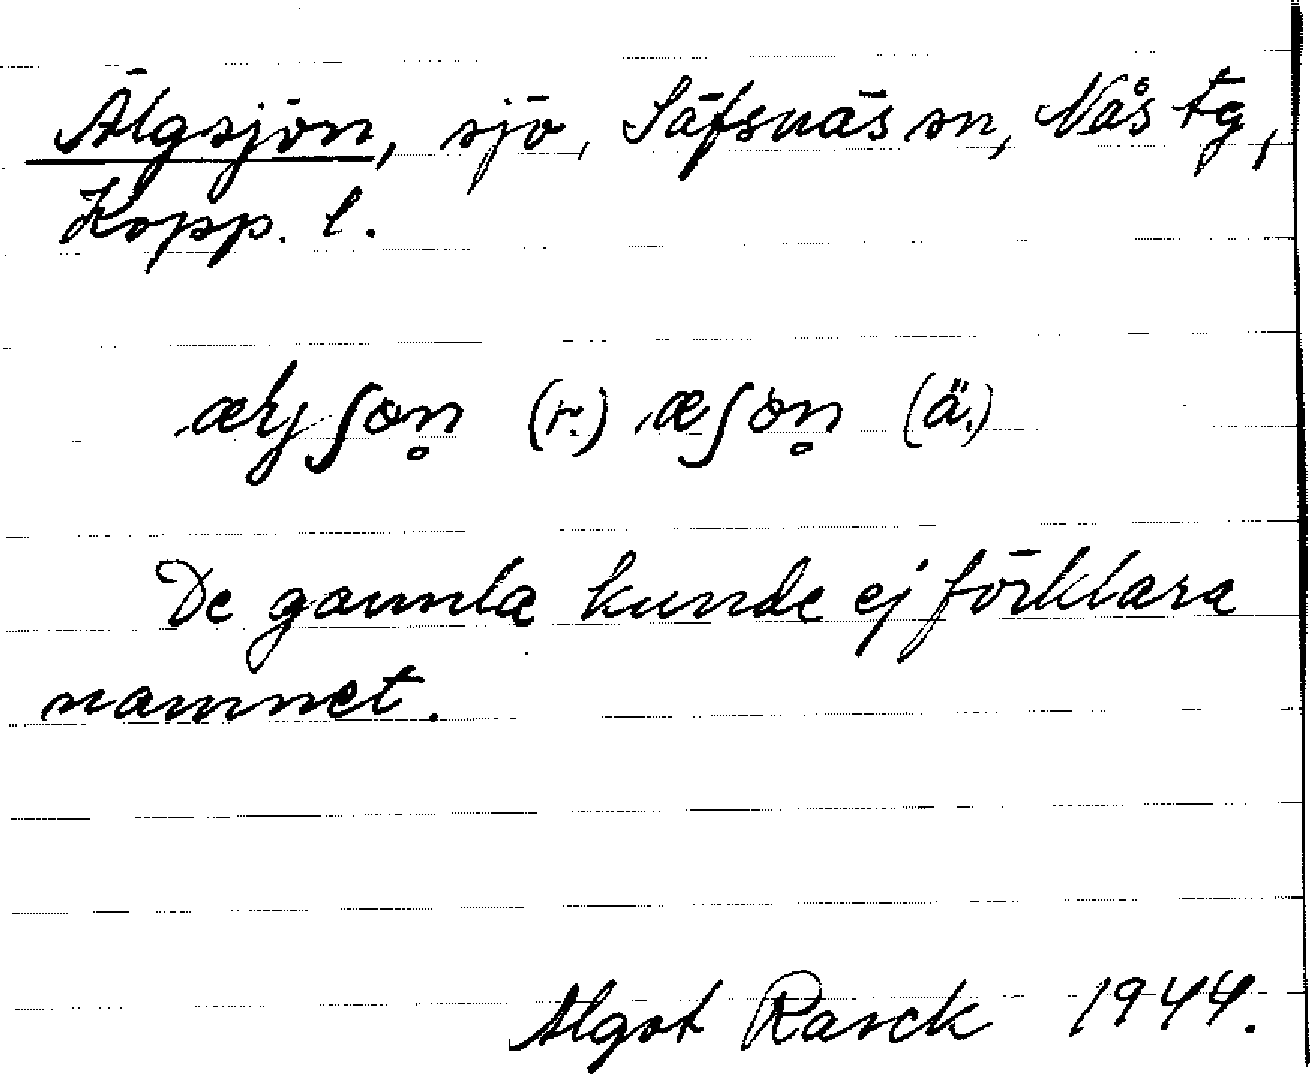 Älgsjön, sjö, Säfsnäs sn, Nås tg,
Kopp. l.
æljʃɷn̥ (r.) æʃɷn̥ (ä.)
De gamla kunde ej förklara
namnet.
Algot Rasck 1944.